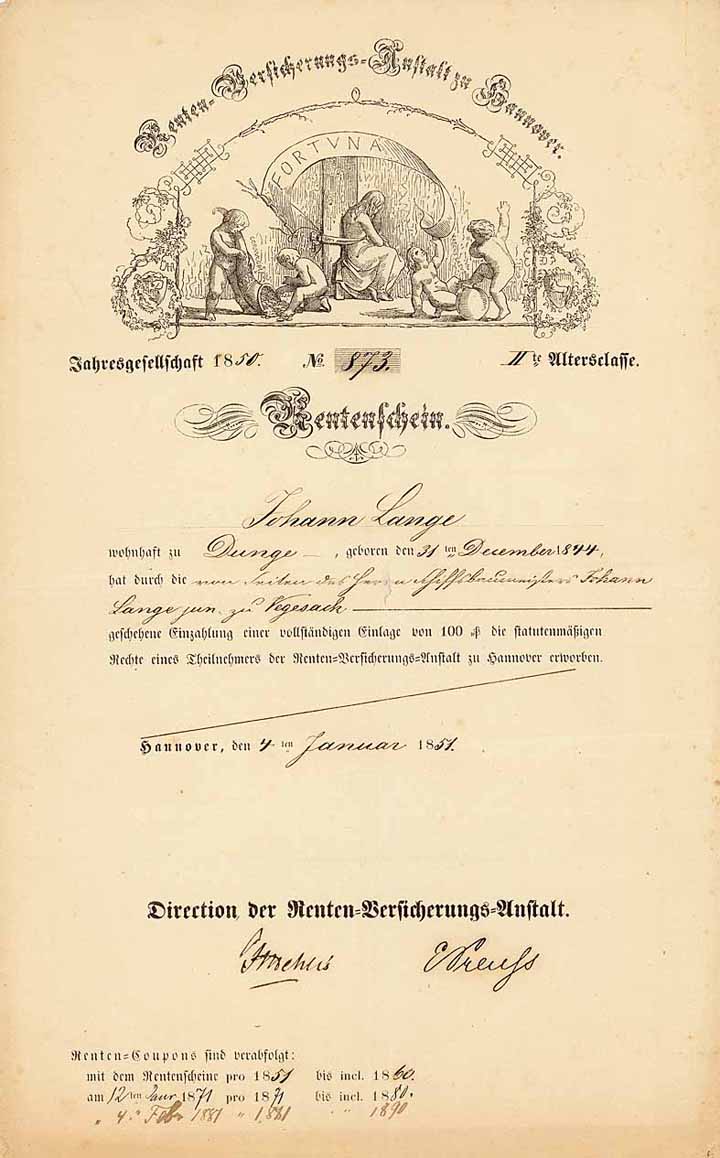 Renten-Versicherungs-Anstalt zu Hannover.
FORTVNA
Jahresgesellschaft 1850. No. 873. IIte Altersclasse.
Rentenschein.
Johann Lange
wohnhaft zu Dunge –, geboren den 31ten December 1844,
hat durch die von Seiten des Herrn Schiffsbaumeisters Johann
Lange jun. zu Vegesack
geschehene Einzahlung einer vollständigen Einlage von 100 ₰ die statutenmäßigen
Rechte eines Theilnehmers der Renten=Versicherungs=Anstalt zu Hannover erworben.
Hannover, den 4ten Januar 1851.
Direction der Renten=Versicherungs=Anstalt.
CPreuss
Renten=Coupons sind verabfolgt:
mit dem Rentenscheine pro 1851 bis incl. 1860.
am 12ten Janr 1871 pro 1871 bis incl. 1880.
" 4. " Febr 1881 " 1881 " " 1890